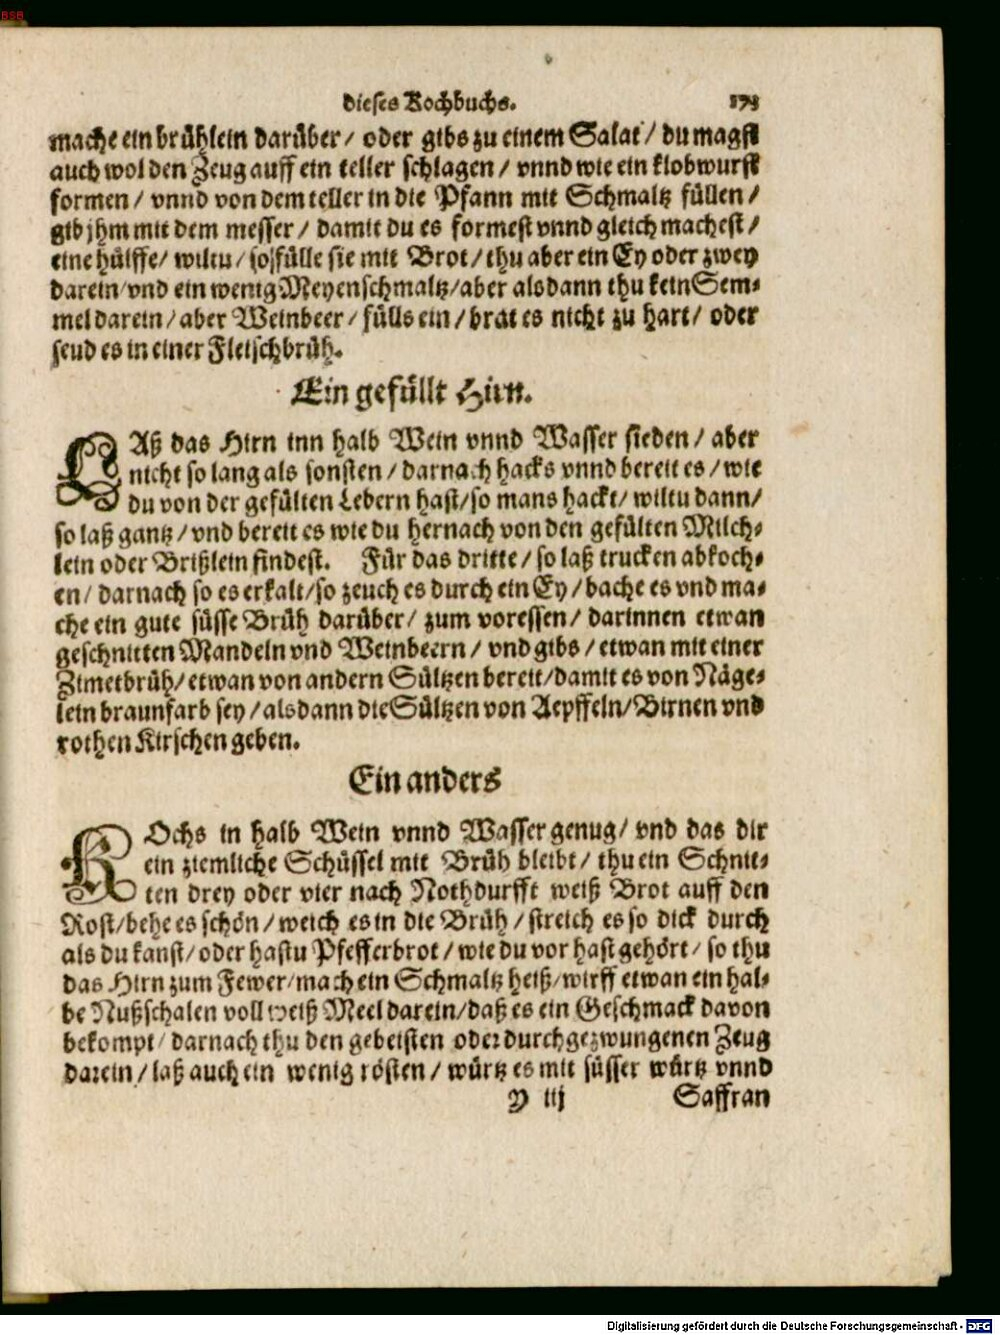 BSB
dieses Kochbuchs. 173
mache ein brühlein darüber / oder gibs zu einem Salat / du magst
auch wol den Zeug auff ein teller schlagen / vnnd wie ein klobwurst
formen / vnnd von dem teller in die Pfann mit Schmaltz füllen /
gib jhm mit dem messer / damit du es formest vnnd gleich machest /
eine hülffe / wiltu / so fülle sie mit Brot / thu aber ein Ey oder zwey
darein / vnd ein wenig Meyenschmaltz / aber alsdann thu kein Sem-
mel darein / aber Weinbeer / fülls ein / brat es nicht zu hart / oder
seud es in einer Fleischbrüh.
Ein gefüllt Hirn.
LAß das Hirn inn halb Wein vnnd Wasser sieden / aber
nicht so lang als sonsten / darnach hacks vnnd bereit es / wie
du von der gefülten Lebern hast / so mans hackt / wiltu dann /
so laß gantz / vnd bereit es wie du hernach von den gefülten Milch-
lein oder Brißlein findest. Für das dritte / so laß trucken abkoch-
en / darnach so es erkalt / so zeuch es durch ein Ey / bache es vnd ma-
che ein gute süsse Brüh darüber / zum voressen / darinnen etwan
geschnitten Mandeln vnd Weinbeern / vnd gibs / etwan mit einer
Zimetbrüh / etwan von andern Sültzen bereit / damit es von Näge-
lein braunfarb sey / alsdann die Sültzen von Aepffeln / Birnen vnd
rothen Kirschen geben.
Ein anders
KOchs in halb Wein vnnd Wasser genug / vnd das dir
ein ziemliche Schüssel mit Brüh bleibt / thu ein Schnit-
ten drey oder vier nach Nothdurfft weiß Brot auff den
Rost / behe es schön / weich es in die Brüh / streich es so dick durch
als du kanst / oder hastu Pfefferbrot / wie du vor hast gehört / so thu
das Hirn zum Fewer / mach ein Schmaltz heiß / wirff etwan ein hal-
be Nußschalen voll weiß Meel darein / daß es ein Geschmack davon
bekompt / darnach thu den gebeisten oder durchgezwungenen Zeug
darein / laß auch ein wenig rösten / würtz es mit süsser würtz vnnd
Y iij Saffran
Digitalisierung gefördert durch die Deutsche Forschungsgemeinschaft - DFG